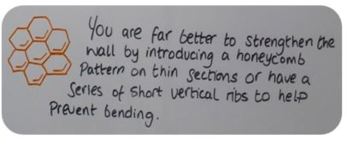 You are far better to strengthen the
wall by introducing a honeycomb
Pattern on thin sections or have a
Series of short vertical ribs to help
Prevent bending.